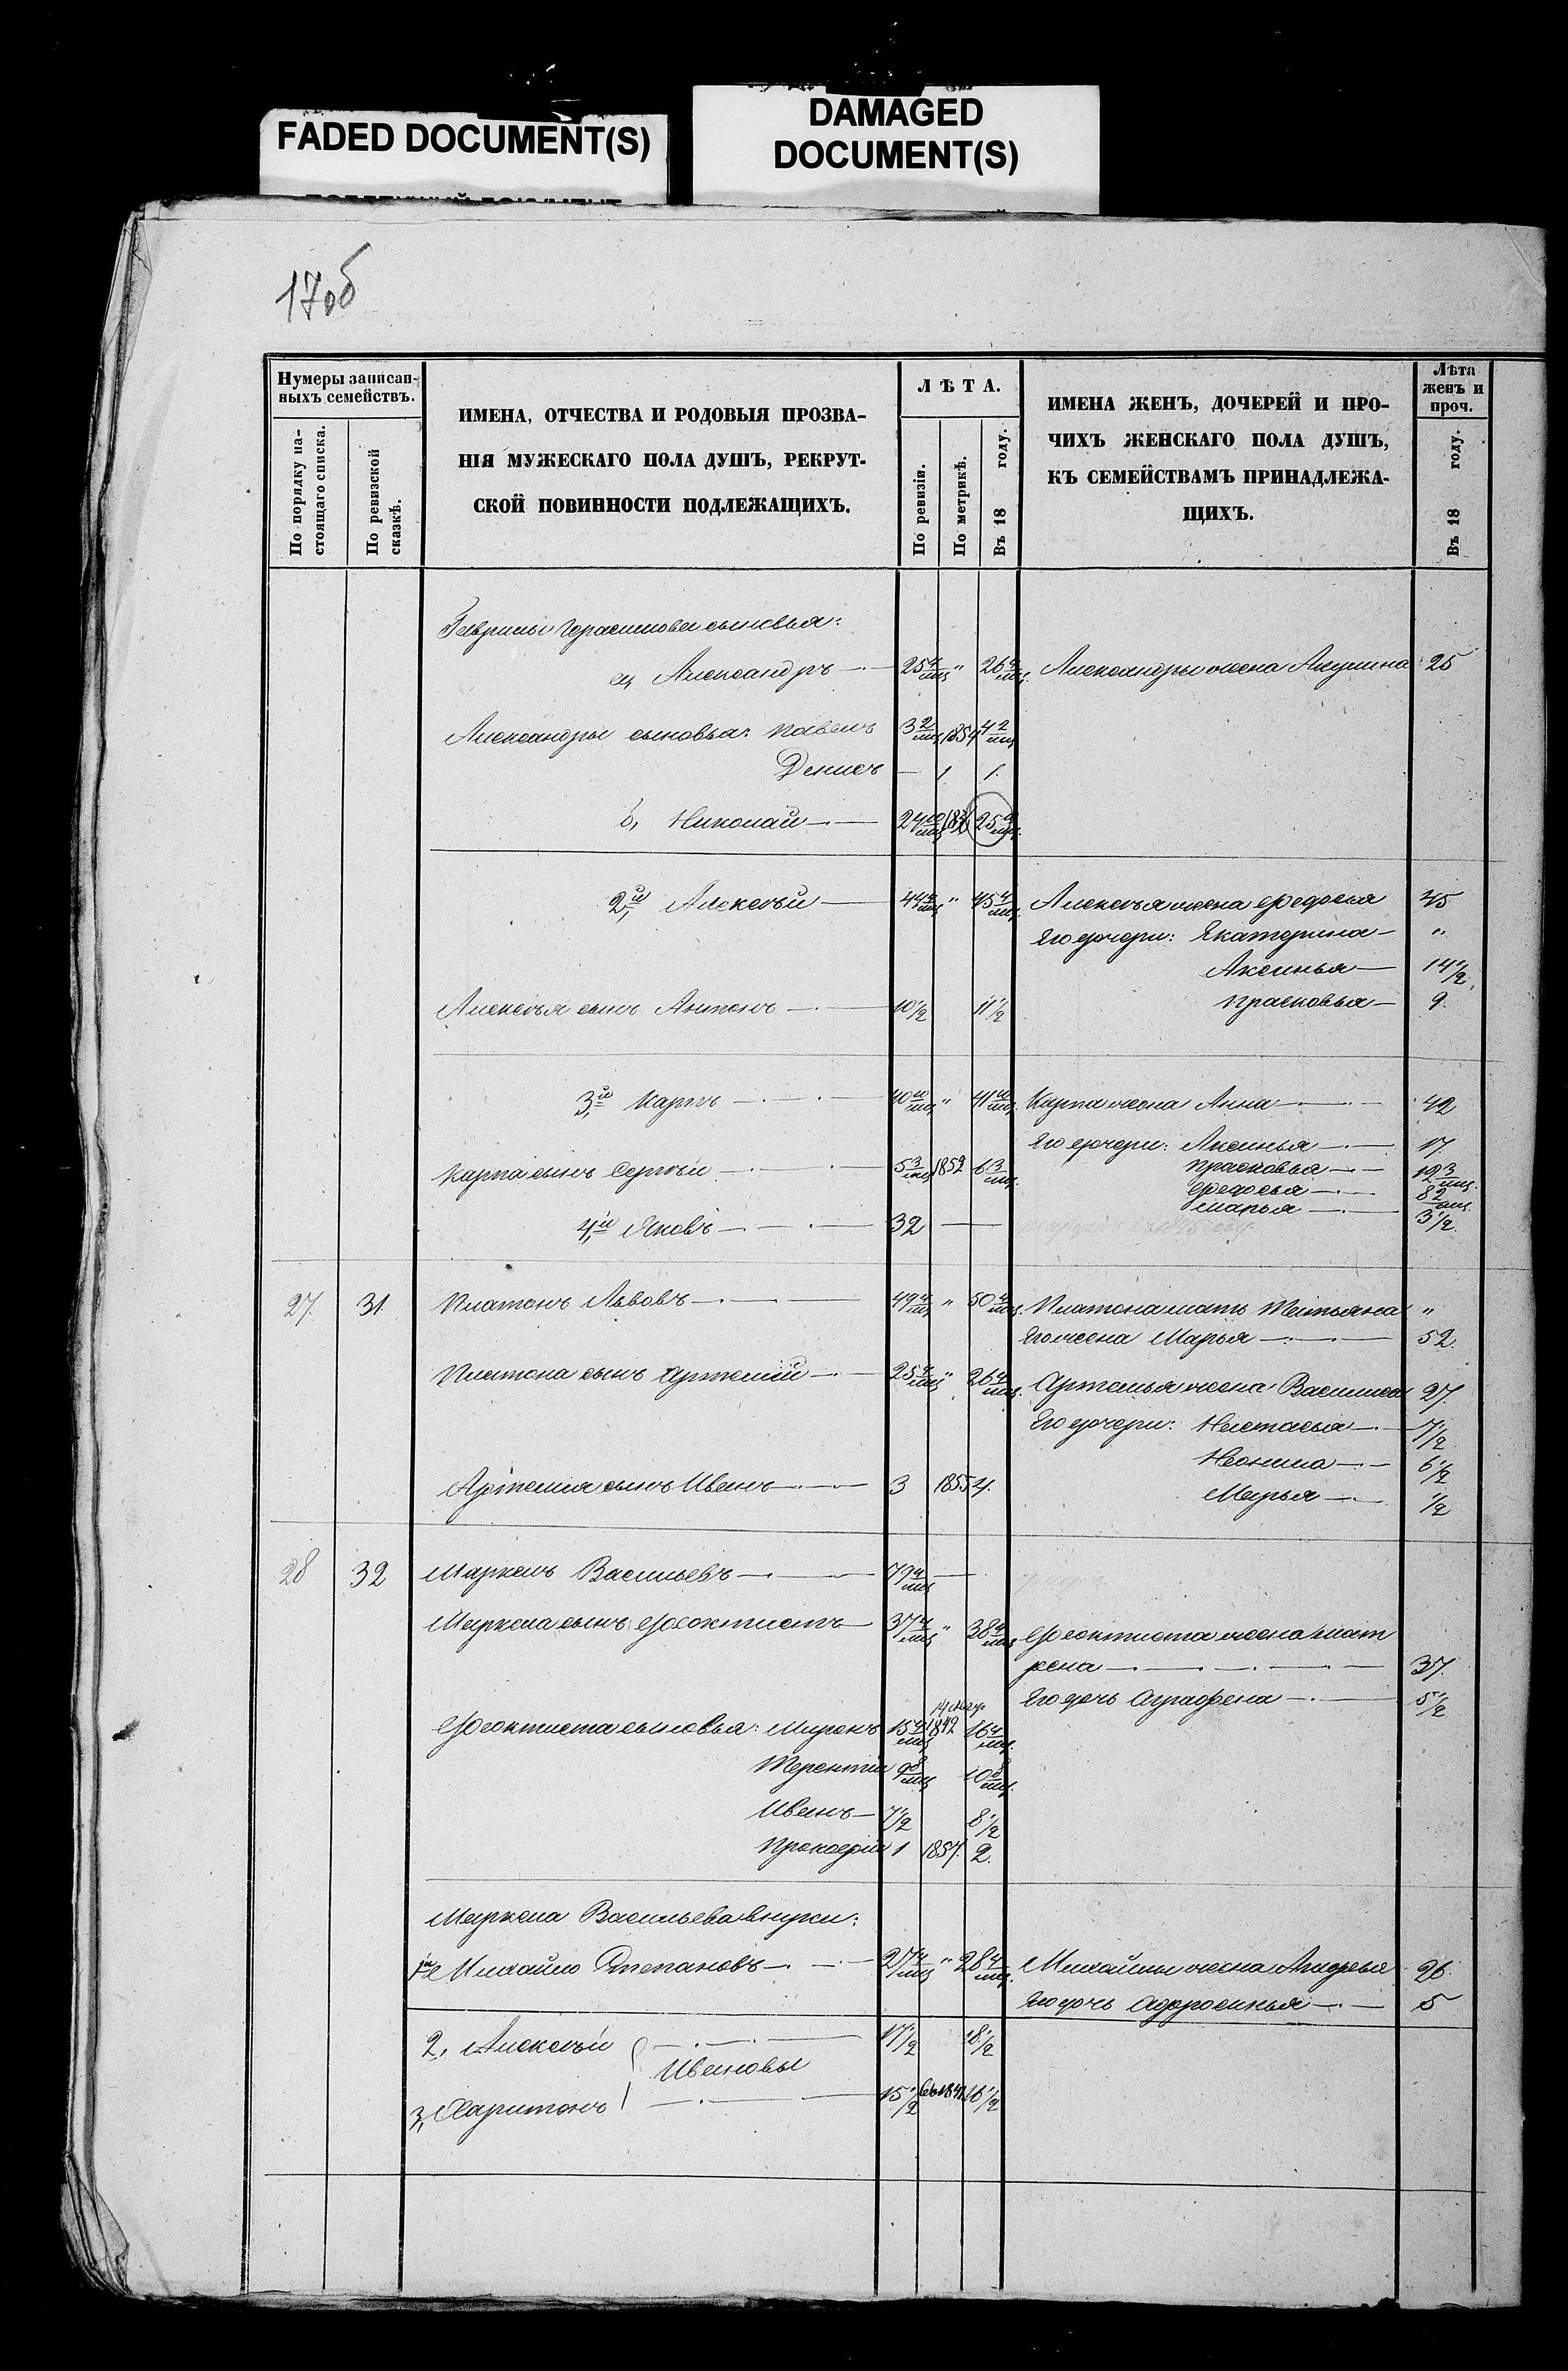 FADED DOCUMENT(S)
DAMAGED
DOCUMENT(S)
17об
Нумеры записан-
ныхъ семействъ.
По порядку на-
стоящаго списка.
По ревизской
сказкѣ.
ИМЕНА, ОТЧЕСТВА И РОДОВЫЯ ПРОЗВА-
НІЯ МУЖЕСКАГО ПОЛА ДУШЪ, РЕКРУТ-
СКОЙ ПОВИННОСТИ ПОДЛЕЖАЩИХЪ.
ЛѢТА.
По ревизіи.
По метрикѣ.
Въ 18 году.
ИМЕНА ЖЕНЪ, ДОЧЕРЕЙ И ПРО-
ЧИХЪ ЖЕНСКАГО ПОЛА ДУШЪ,
КЪ СЕМЕЙСТВАМЪ ПРИНАДЛЕЖА-
ЩИХЪ.
Лѣта
женъ и
проч.
Въ 18 году.
Гаврилы Герасимова сыновья:
а, Александръ 25 4/мц " 26 4/мц. Александры жена Акулина 25
Александры сыновья: Павелъ 3 2/мц 1854 4 2/мц
Денисъ — 1 1.
б, Николай 24 25
2й Алексѣй 44 4/мц " 45 4/мц. Алексѣя жена Федосья 45
Его дочери: Екатерина "
Аксинья 14 1/2.
Алексѣя сынъ Антонъ 10 1/2 11 1/2 Прасковья 9.
3й Карпъ 40 10/мц " 41 10/мц. Карпа жена Анна 42
Его дочери: Аксинья 17.
Карпа сынъ Сергѣй 5 3/мц 1852 6 3/мц. Прасковья 12 3/мц.
Федосья 8 2/мц
Марья 3 1/2.
4й Яковъ 32 —
27. 31. Платонъ Львовъ 49 4/мц " 50 4/мц. Платона мать Татьяна "
Его жена Марья 52.
Платона сынъ Артемій 25 4/мц " 26 4/мц. Артемья жена Василиса 27.
Его дочери: Настасья 7 1/2
Неонила 6 1/2
Артемія сынъ Иванъ 3 1855 4. Марья 1/2
28 32 Маркелъ Васильевъ 79 4/мц —
Маркела сынъ Феоктистъ 37 4/мц " 38 4/мц Феоктиста жена Мат
рена 37.
Его дочь Аграфена 5 1/2
Феоктиста сыновья: Миронъ 15 4/мц 1842 16 4/мц.
Терентій 9 8/мц 10 8/мц.
Иванъ 7 1/2 8 1/2
Прокофій 1 1857. 2.
Маркела Васильева внуки:
1й Михайло Степановъ 27 4/мц " 28 4/мц. Михайлы жена 26.
Его дочь Афросинья 5
2, Алексѣй 17 1/2 18 1/2
Ивановы
3, Харитонъ 15 1/2 1841 16 1/2